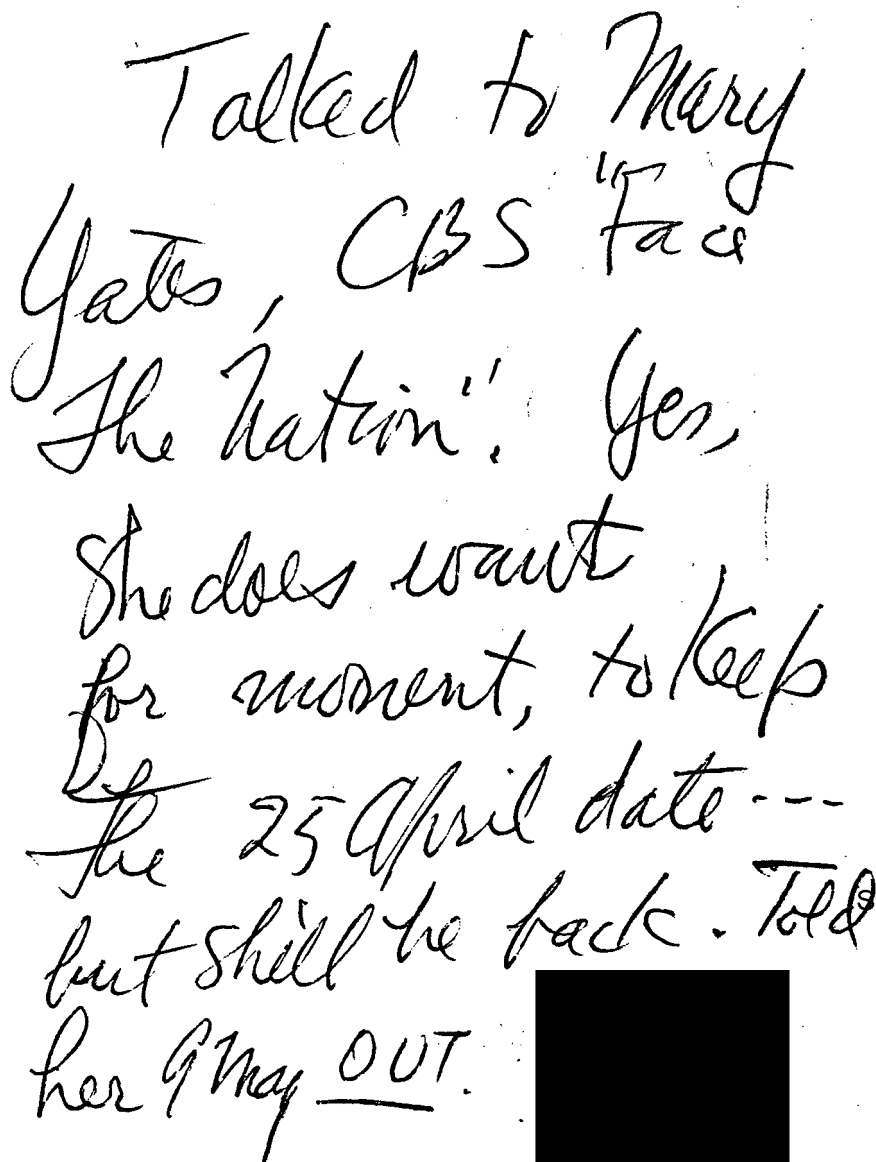 Talked to Mary
Yates, CBS "Face
The Nation". Yes,
she does want
for moment, to keep
the 25 April date ---
but she'll be back. Told
her 9 May OUT.